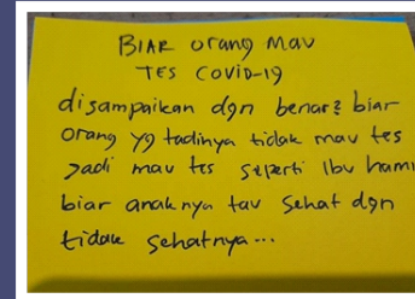 BIAR orang mau
TES COVID-19
disampaikan dgn benar2 biar
orang yg tadinya tidak mau tes
jadi mau tes seperti Ibu hami
biar anaknya tau sehat dgn
tidak sehatnya...